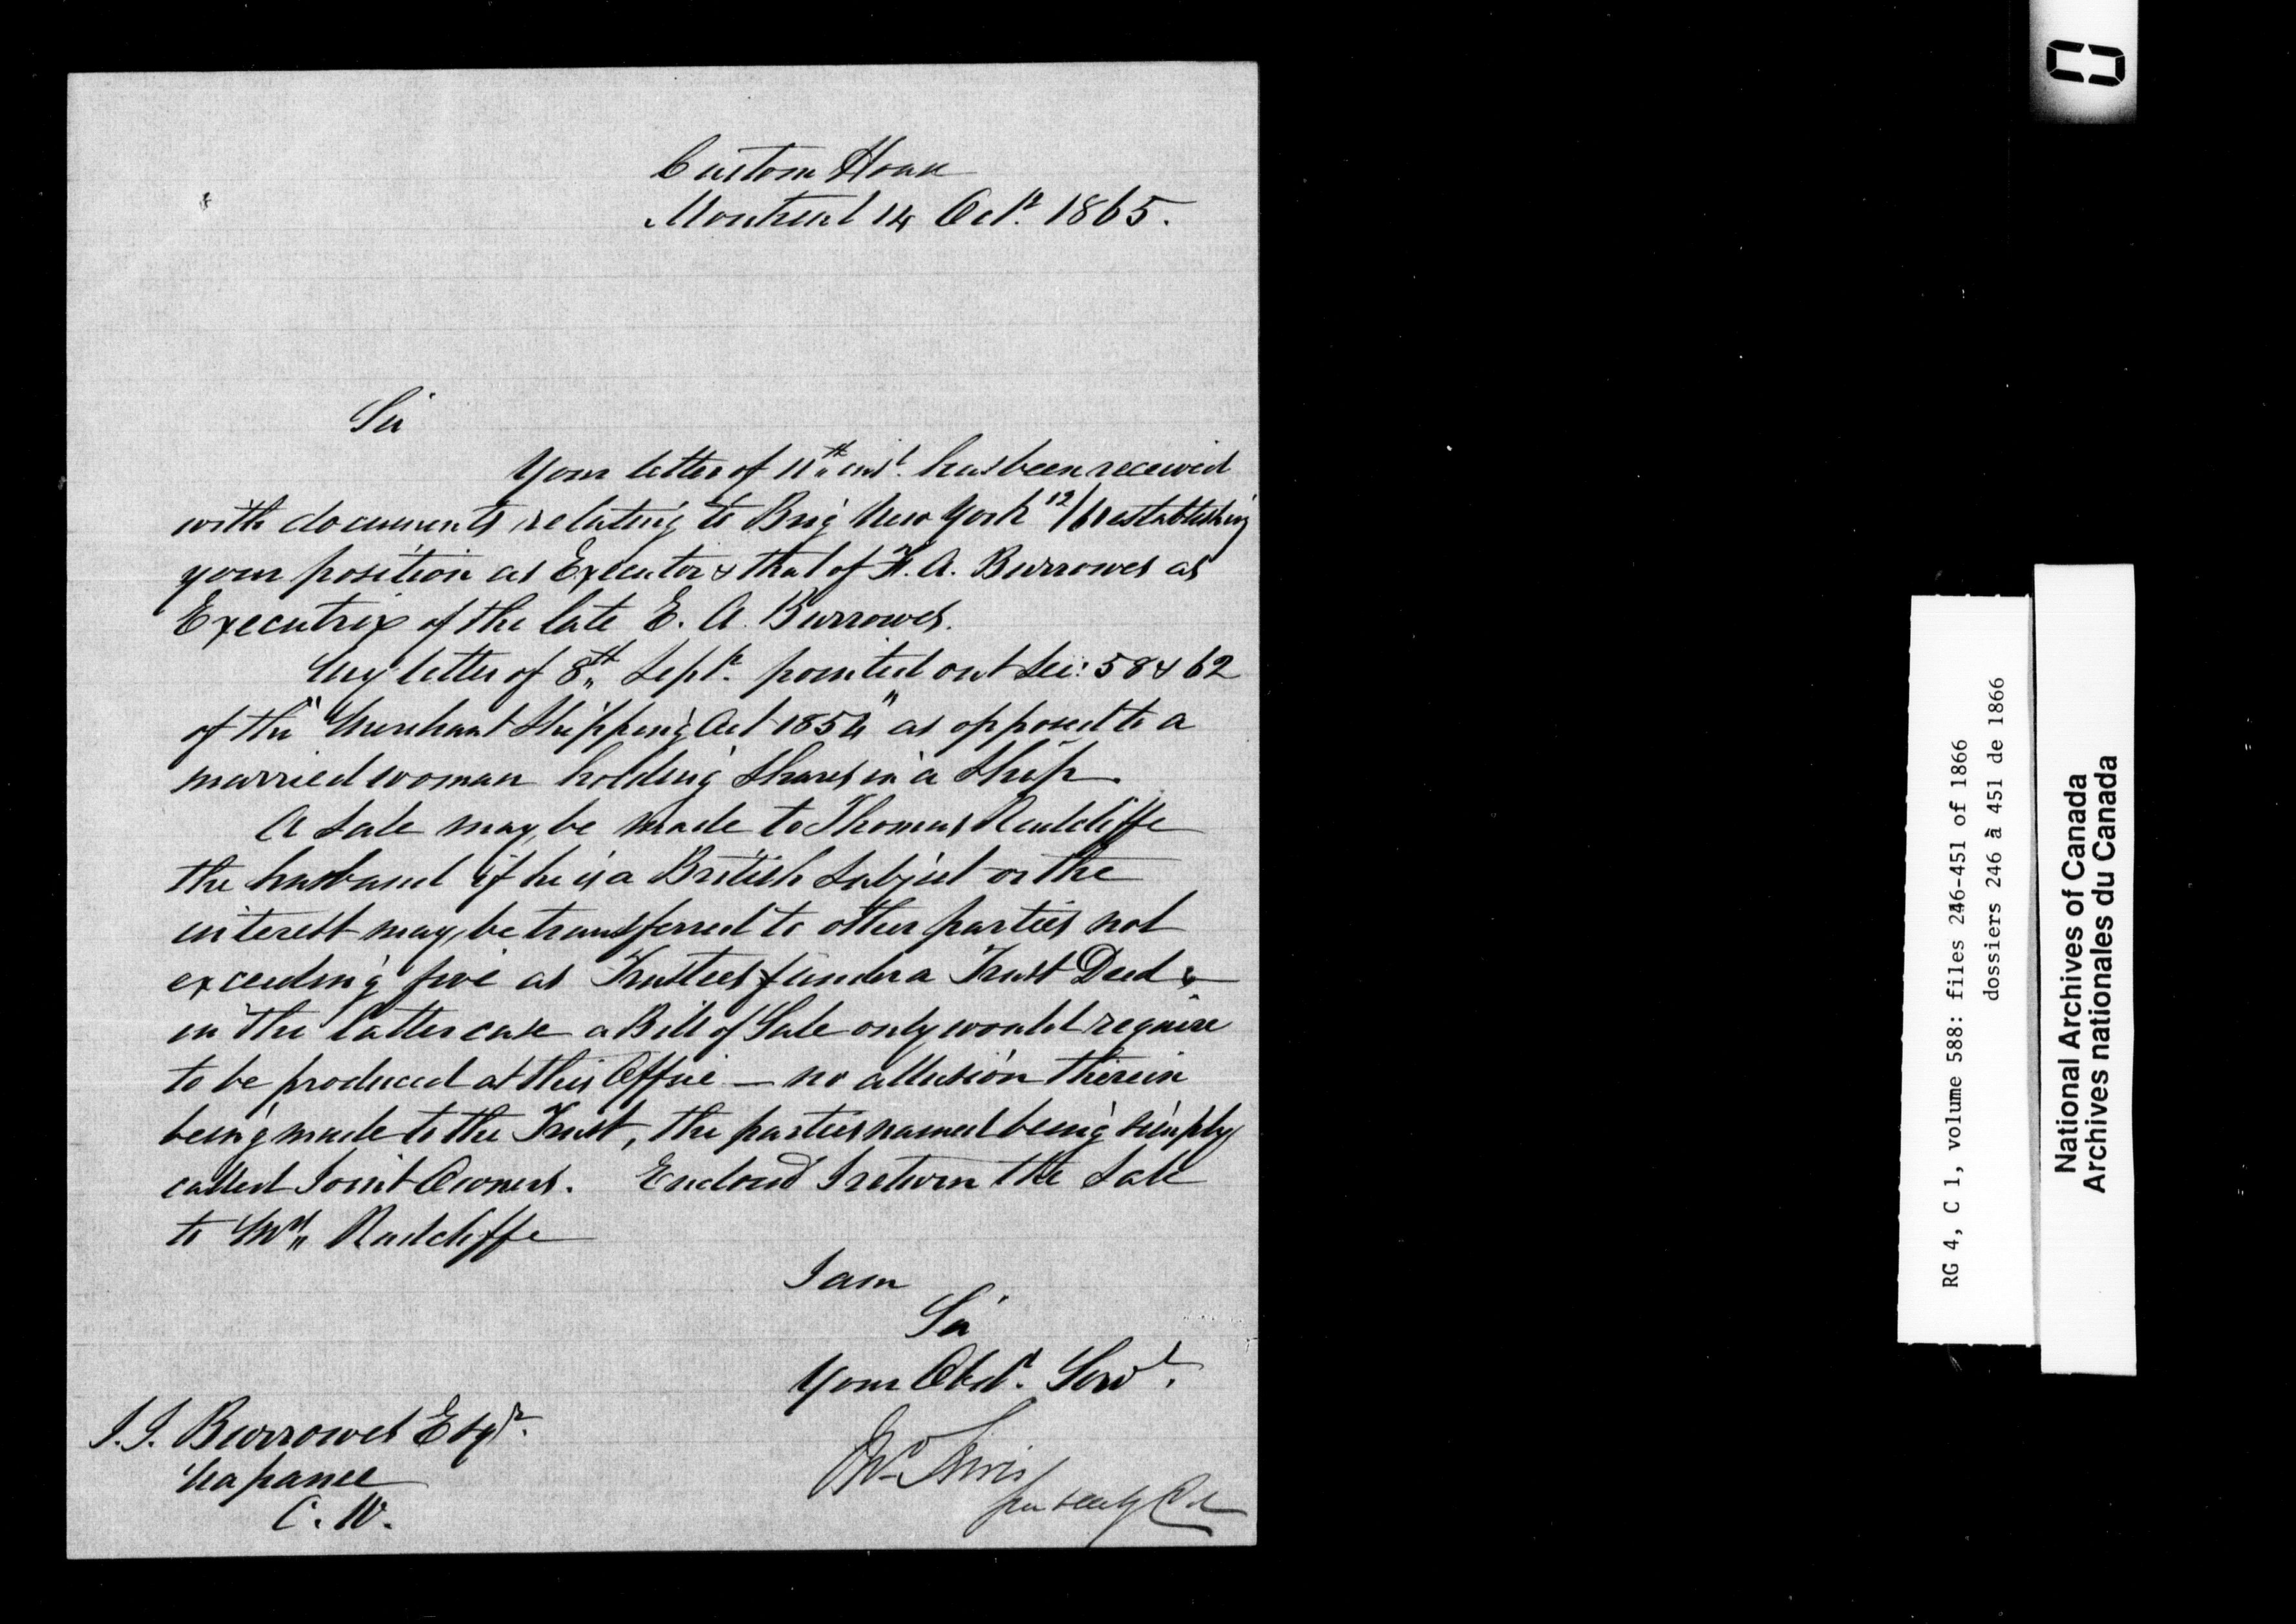 Custom House
Montreal 14 Octr. 1865.
Sir
Your letter of 11th inst. has been received
with documents relating to Brig New York 12/61 establishing
your position as Executor & that of F. A. Burrowes as
Executrix of the late E. A. Burrowes.
My letter of 8th Septr. pointed out Sec: 58 & 62
of the "Merchant Shipping Act 1854" as opposed to a
married woman holding shares in a Ship.
A Sale may be made to Thomas Radcliffe
the husband if he is a British Subject or the
interest may be transferred to other parties not
exceeding five as Trustees under a Trust Deed &
in the latter case a Bill of Sale only would require
to be produced at this Office — no allusion therein
being made to the Trust, the parties named being simply
called Joint Owners. Enclosed I return the Sale
to Mrs Radcliffe
I am
Sir
Your Obdt. Servt.
J. J. Burrowes Esqr.
Napanee
C. W.
RG 4, C 1, volume 588: files 246-451 of 1866
dossiers 246 à 451 de 1866
National Archives of Canada
Archives nationales du Canada